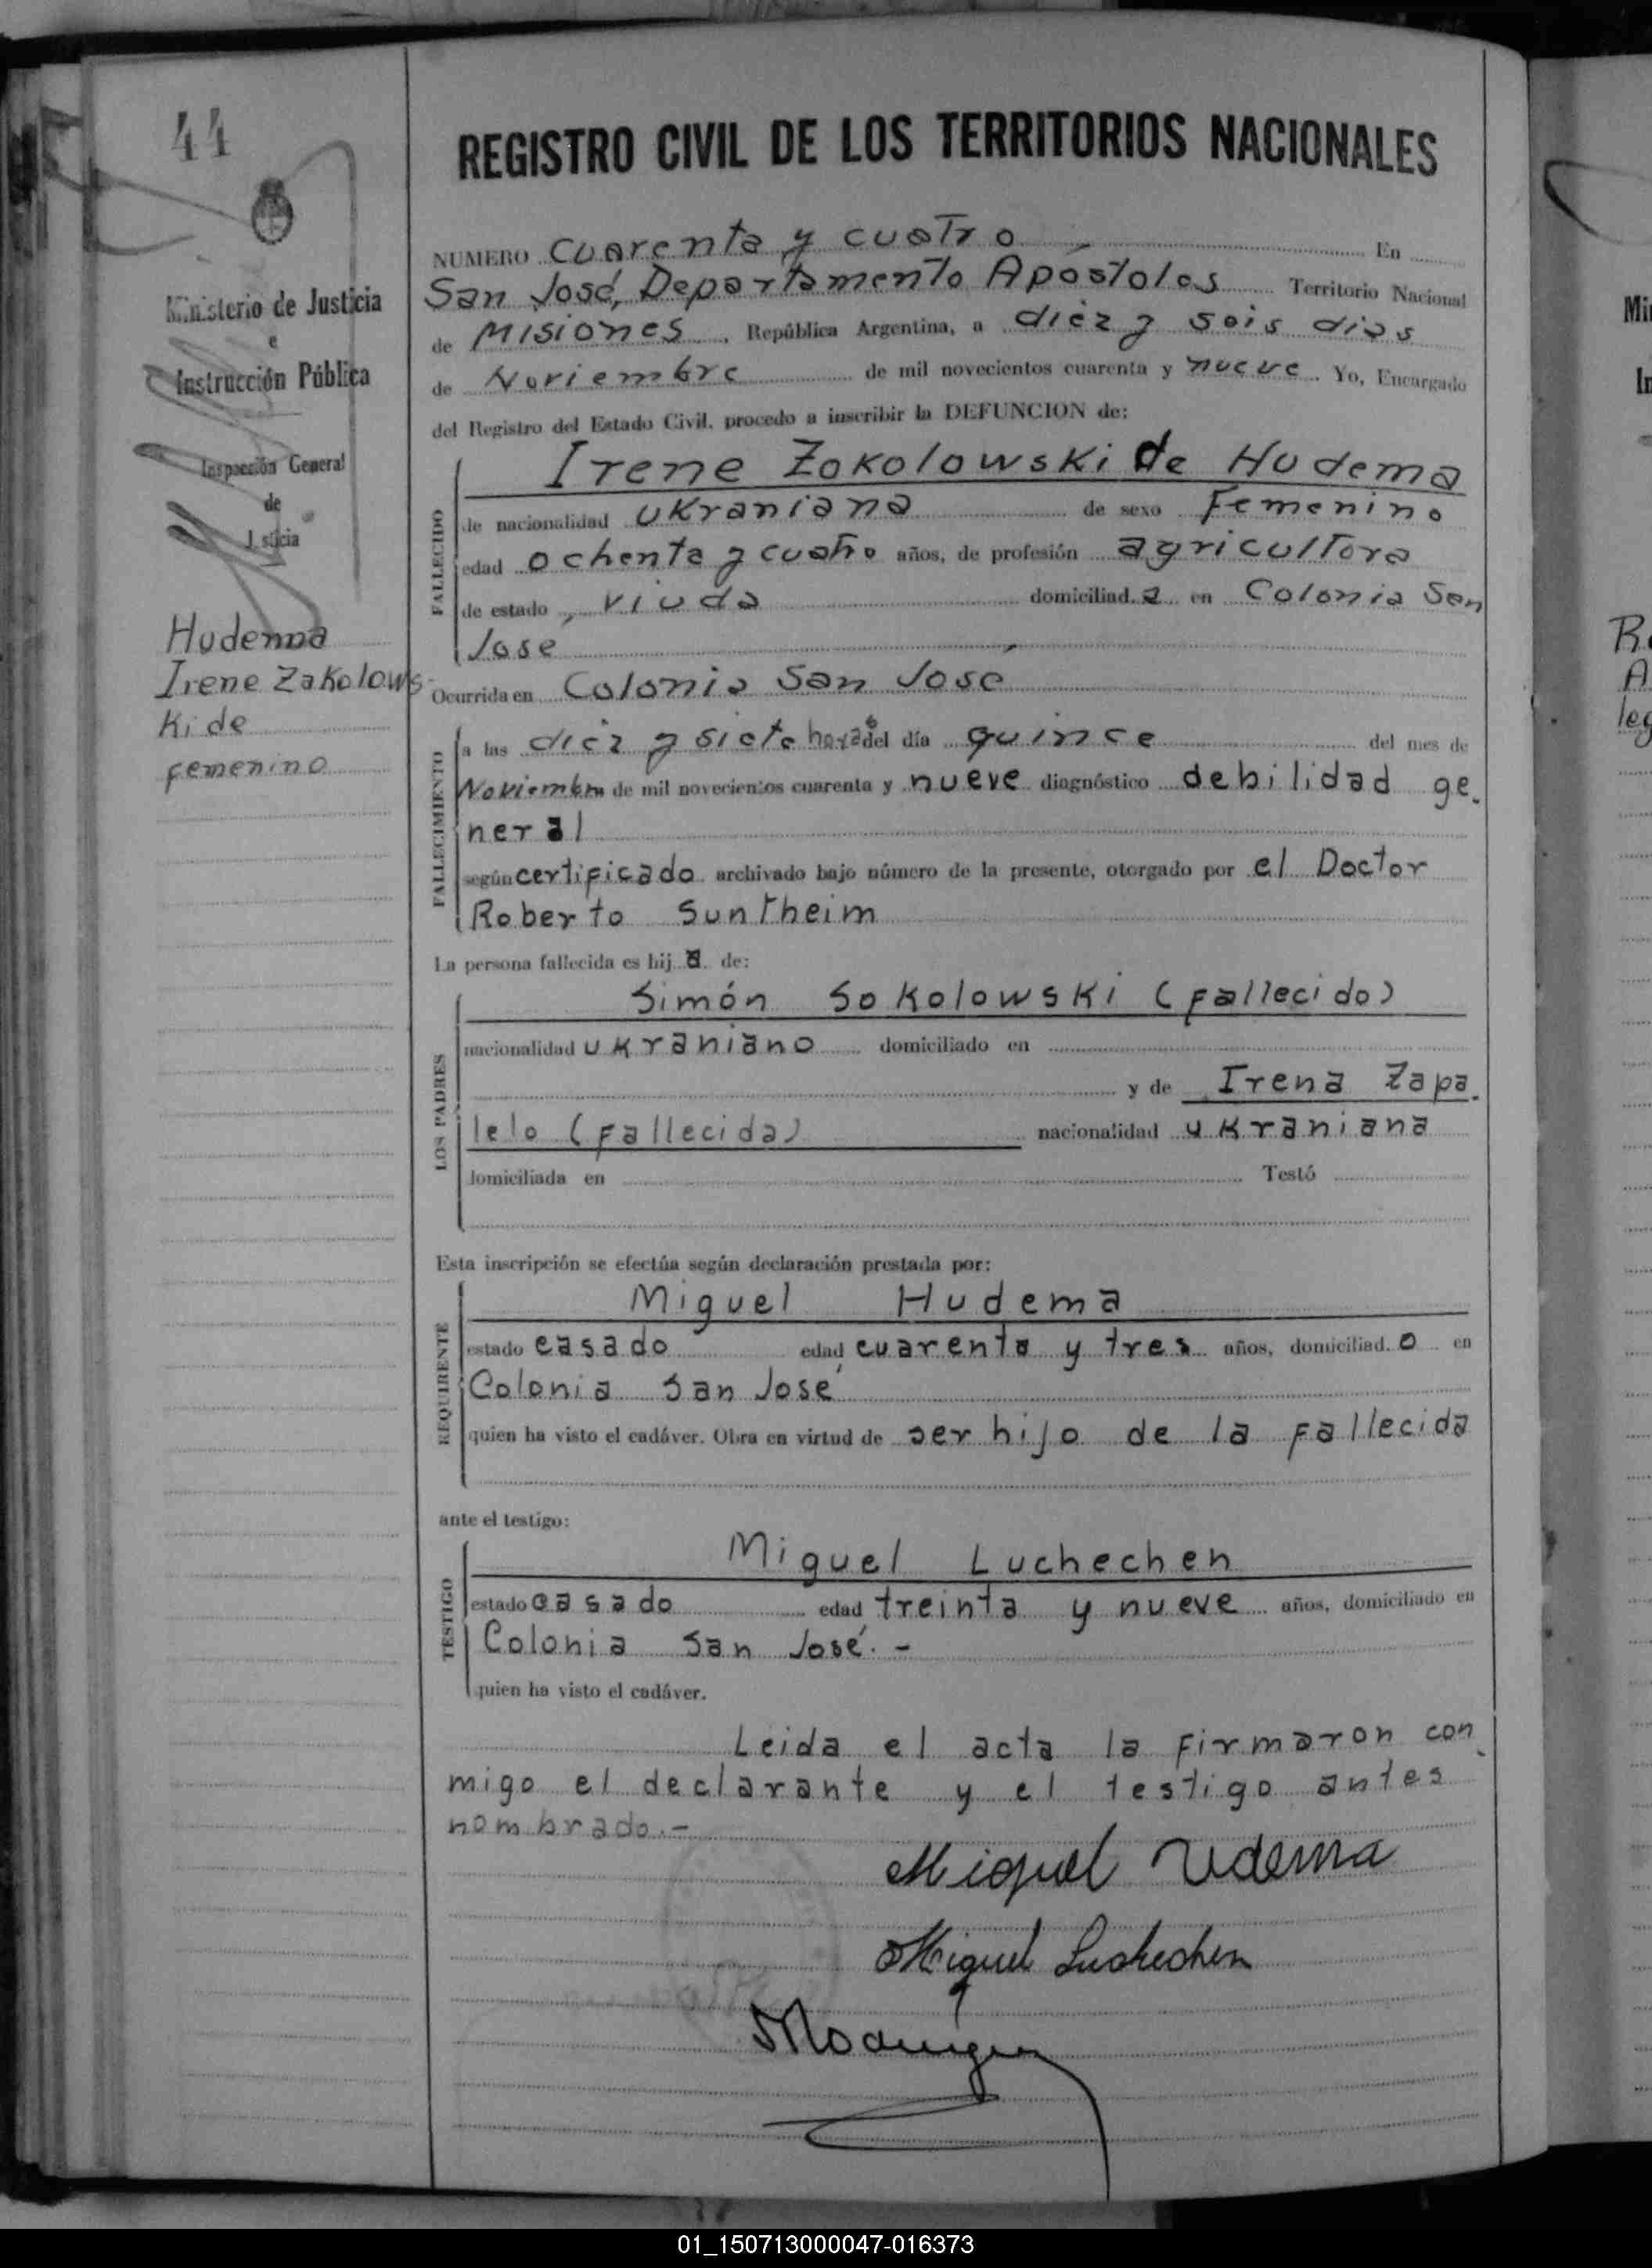 44
REGISTRO CIVIL DE LOS TERRITORIOS NACIONALES
Ministerio de Justicia
e
Instrucción Pública
Inspección General
de
Justicia
Hudema
Irene Zakolows
Ki de
femenino
NUMERO Cuarenta y cuatro En
San José, Departamento Apóstoles Territorio Nacional
de Misiones, República Argentina, a diez y seis dias
de Noviembre de mil novecientos cuarenta y nueve. Yo, Encargado
del Registro del Estado Civil, procedo a inscribir la DEFUNCION de:
FALLECIDO
Irene Zokolowski de Hudema
de nacionalidad Ukraniana de sexo Femenino
edad ochenta y cuatro años, de profesión agricultora
de estado viuda domiciliada en Colonia San
José
Ocurrida en Colonia San José
FALLECIMIENTO
a las diez y siete horas del día quince del mes de
Noviembre de mil novecientos cuarenta y nueve diagnóstico debilidad ge.
neral
según certificado archivado bajo número de la presente, otorgado por el Doctor
Roberto Suntheim
La persona fallecida es hija de:
LOS PADRES
Simón Sokolowski (fallecido)
nacionalidad ukraniano domiciliado en
y de Irena Zapa.
lelo (fallecida) nacionalidad ukraniana
domiciliada en Testó
Esta inscripción se efectúa según declaración prestada por:
REQUIRENTE
Miguel Hudema
estado casado edad cuarenta y tres años, domiciliado en
Colonia San José
quien ha visto el cadáver. Obra en virtud de ser hijo de la fallecida
ante el testigo:
TESTIGO
Miguel Luchechen
estado casado edad treinta y nueve años, domiciliado en
Colonia San José.-
quien ha visto el cadáver.
Leida el acta la firmaron con
migo el declarante y el testigo antes
nombrado.-
Miguel Udema
Miguel Luchechen
01_150713000047-016373